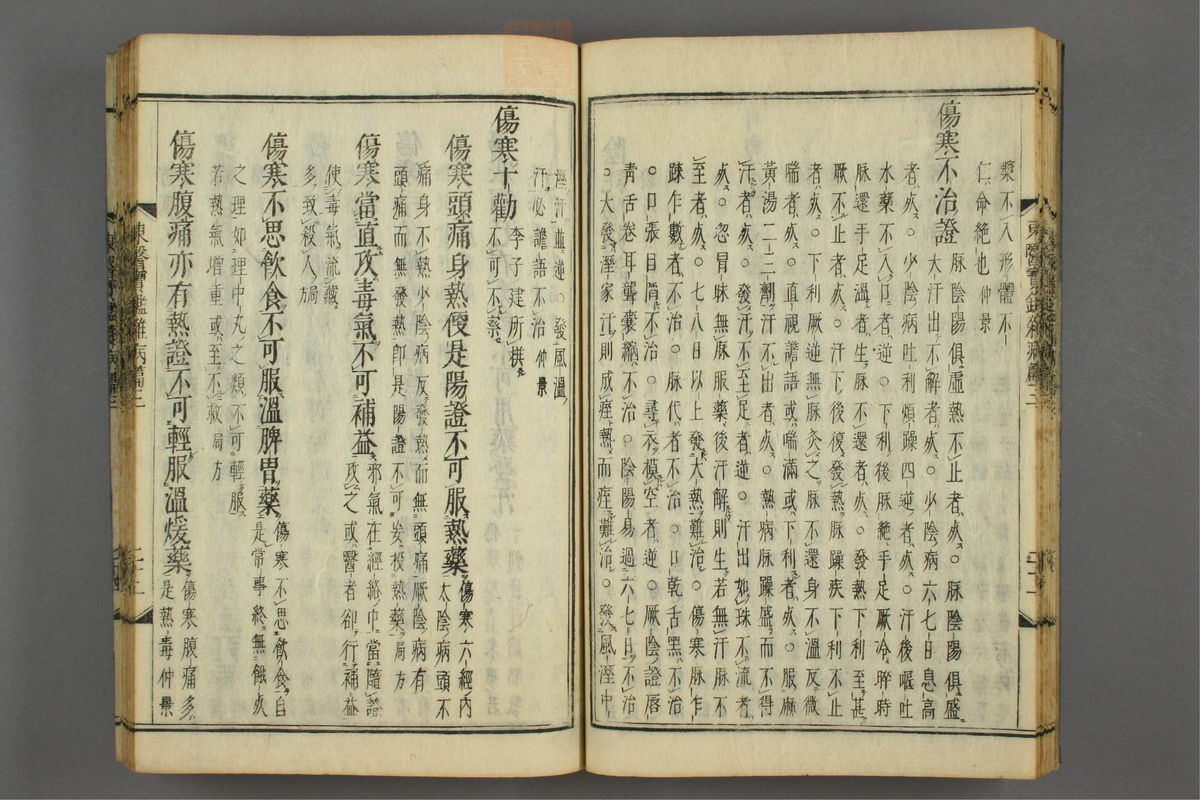 漿不入形體不
仁命絶也仲景
傷寒不治證 脉陰陽俱虛熱不止者死○脉陰陽俱盛
大汗出不解者死○少陰病六七日息高
者死○少陰病吐利煩躁四逆者死○汗後嘔吐
水藥不入口者逆○下利後脉絶手足厥冷晬時
脉還手足溫者生脉不還者死○發熱下利至甚
厥不止者死○下後復發熱脉躁疾下利不止
者死○下利厥逆無脉灸之脉不還身不溫反微
喘者死○直視讝語或喘滿或下利者死○服麻
黃湯二三劑汗不出者死○熱病脉躁盛而不得
汗者死○發汗不至足者逆○汗出如珠不流者
死○忽冒昧無脉服藥後汗解則生若無汗脉不
至者死○七八日以上發大熱難治○傷寒脉乍
踈乍數者不治○脉代者不治○口乾舌黑不治
○口張目陷不治○尋衣模空者逆○厥陰證唇
靑舌卷耳聾囊縮不治○陰陽易過六七日不治
○大發溼家汗則成痓熱而痓難治○發風溼中
溼汗並逆○發風溫
汗必譫語不治仲景
傷寒十勸 李子建所撰
不可不察
傷寒頭痛身熱便是陽證不可服熱藥 傷寒六經內
太陰病頭不
痛身不熱少陰病反發熱而無頭痛厥陰病有
頭痛而無發熱卽是陽證不可妄投熱藥局方
傷寒當直攻毒氣不可補益 邪氣在經絡中當隨證
攻之或醫者却行補益
使毒氣流藏
多致殺人局
傷寒不思飲食不可服溫脾胃藥 傷寒不思飮食自
是常事終無餓死
之理如理中丸之類不可輕服
若熱氣增重或至不救局方
傷寒腹痛亦有熱證不可輕服溫煖藥 傷寒腹痛多
是熱毒仲景
東醫寶鑑雜病篇三